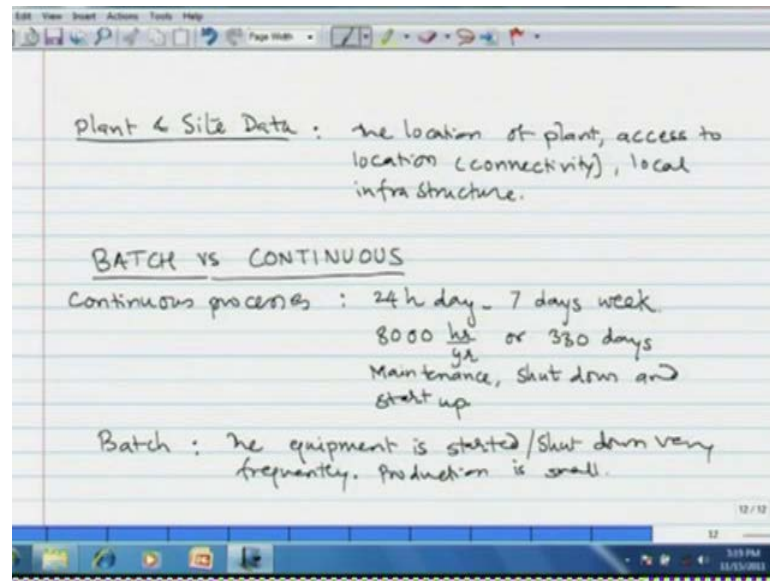 Edit View Insert Actions Tools Help
Page Width
Plant & Site Data : The location of plant, access to
location (connectivity), local
infra structure.
BATCH VS CONTINUOUS
Continuous processes : 24 h day - 7 days week.
8000 hr/yr or 330 days
Maintenance, shut down and
start up
Batch : The equipment is started/shut down very
frequently. Production is small.
12 / 12
12
3:19 PM
11/15/2011